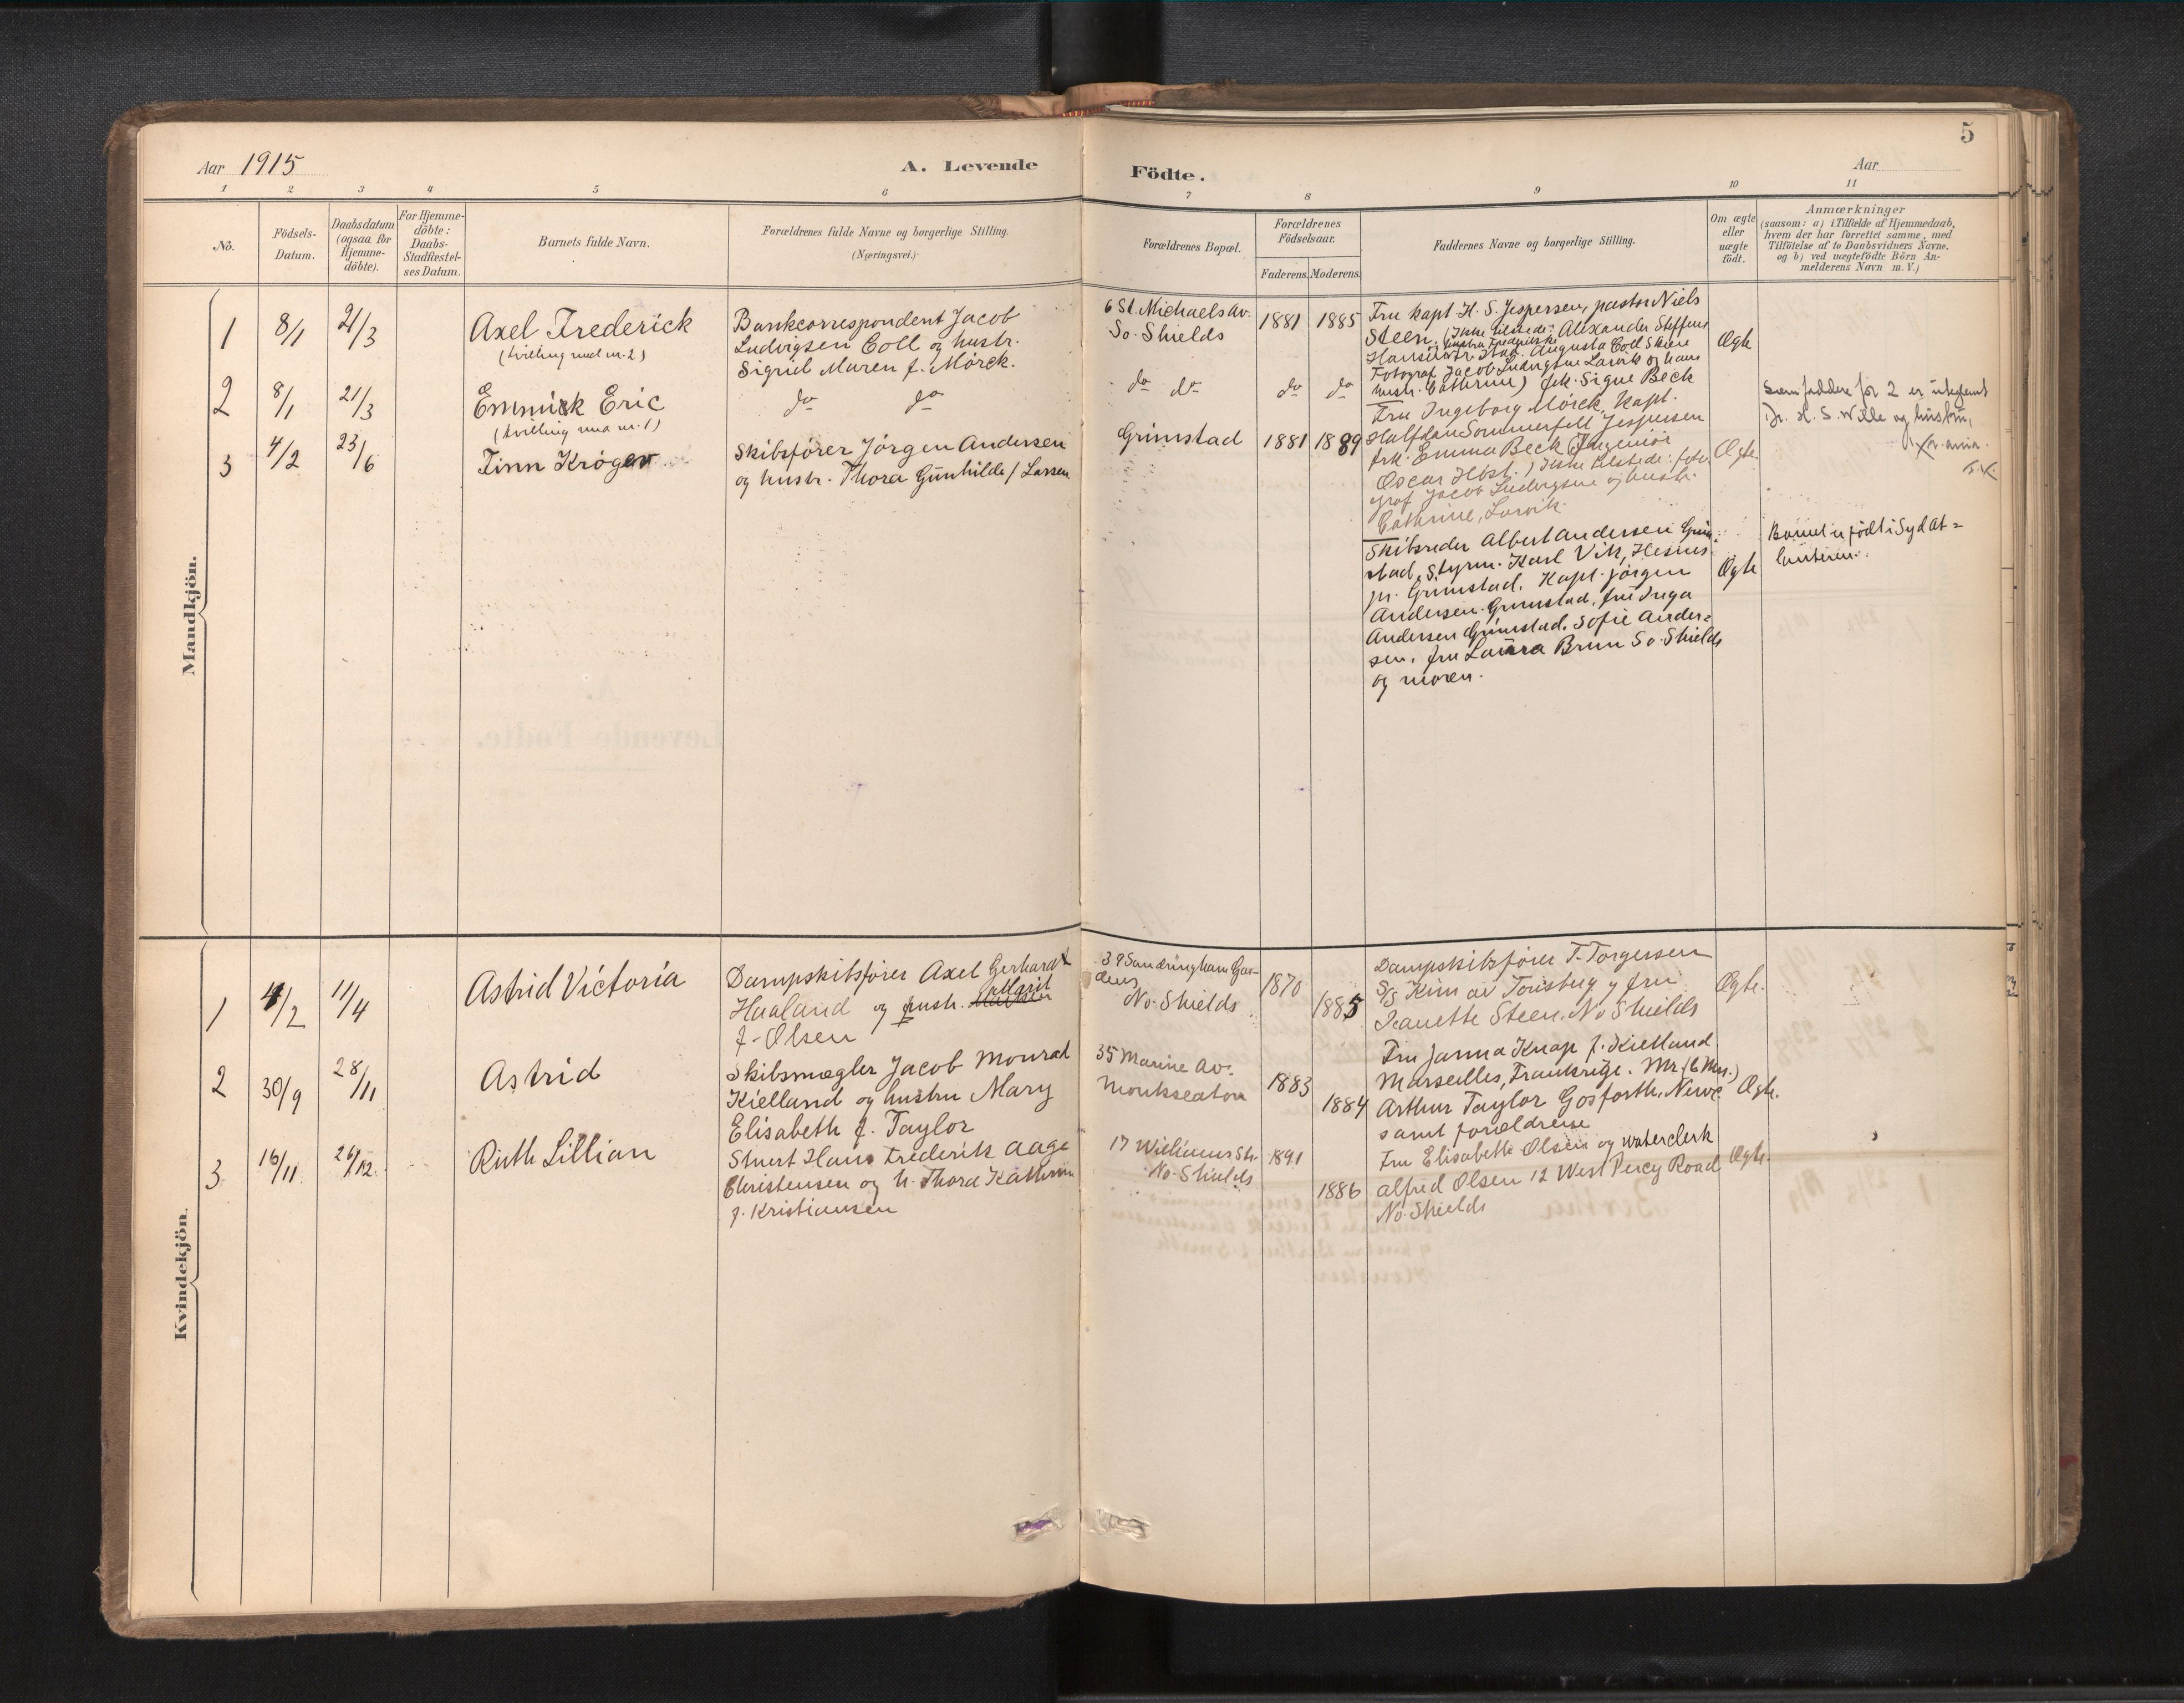 5
Aar 1915
A. Levende
Födte.
Aar
1 2 3 4 5 6 7 8 9 10 11
No.
Födsels-
Datum.
Daabsdatum
(ogsaa for
Hjemme-
döbte).
For Hjemme-
döbte:
Daabs-
Stadfæstel-
ses Datum.
Barnets fulde Navn.
Forældrenes fulde Navne og borgerlige Stilling.
(Næringsvei.)
Forældrenes Bopæl.
Forældrenes
Födselsaar.
Faderens. Moderens.
Faddernes Navne og borgerlige Stilling.
Om ægte
eller
uægte
födt.
Anmærkninger
(saasom: a) i Tilfælde af Hjemmedaab,
hvem der har forrettet samme, med
Tilföielse af to Daabsvidners Navne.
og b) ved uægtefödte Börn An-
melderens Navn m. V.)
Mandkjön.
1
8/1
21/3
Axel Frederick
(tvilling med nr. 2)
Bankcorrespondent Jacob
Ludvigsen Coll og hustr.
Sigrid Maren f. Mörck.
6 St. Michaels Av.
So. Shields
1881 1885
Fru kapt. H. S. Jespersen, pastor Niels
Steen, (Ikke tilstede: Alexander Steffens
hustru Frederikke
Augusta Coll Skien
Fotograf Jacob Ludvigsen Larvik og hans
hustr. Cathrine) frk. Signe Beck
Ægte
2
8/1
21/3
Emmick Eric
(tvilling med nr. 1)
do do
do do
do do
Fru Ingeborg Mörck, kapt.
Halfdan Sommerfelt Jespersen
frk. Emma Beck (Ingeniör
Oscar Holst.) Ikke tilstede: foto
graf Jacob Ludvigsen og hustr.
Cathrine, Larvik.
Ægte
Som faddere for 2 er uteglemt
Dr. H. S. Wille og hustru,
3
4/2
23/6
Finn Kröger
Skibsförer Jörgen Andersen
og hustr. Thora Gunhilde f Larsen
Grimstad
1881 1889
Skibsreder Albert Andersen Grim-
stad, Styrm. Karl Vik, Hesnes
pr. Grimstad. Kapt. Jörgen
Andersen. Grimstad, fru Inga
Andersen Grimstad. Sofie Ander=
sen, fru Laura Brun So. Shields
og moren.
Ægte
Barnet er födt i Syd At=
lanteren.
Kvindekjön.
1
4/2
11/4
Astrid Victoria
Dampskibsförer Axel Gerhardt
Haaland og hustr.
f. Olsen
39 Sandringham Gar-
dens
No. Shields
1870
1885
Dampskibsförer T. Torgersen
S/S Kim av Tönsberg og fru
Jeanette Steen. No Shields
Ægte.
2
30/9
28/11
Astrid
Skibsmægler Jacob Monrad
Kielland og hustru Mary
Elisabeth f. Taylor
35 Marine Av.
Monkseaton
1883
1884
Fru Janna Knap f. Kielland
Marseilles, Frankrige. Mr. (& Mrs.)
Arthur Taylor Gosforth, Newc
samt forældrene
Ægte.
3
16/11
26/12.
Ruth Lillian
Stuert Hans Frederik Aage
Christensen og h. Thora Kathrine
f. Kristiansen
17 Williams Str.
No. Shields
1891
1886
Fru Elisabeth Olsen og waterclerk
Alfred Olsen 12 West Percy Road
No. Shields
Ægte.